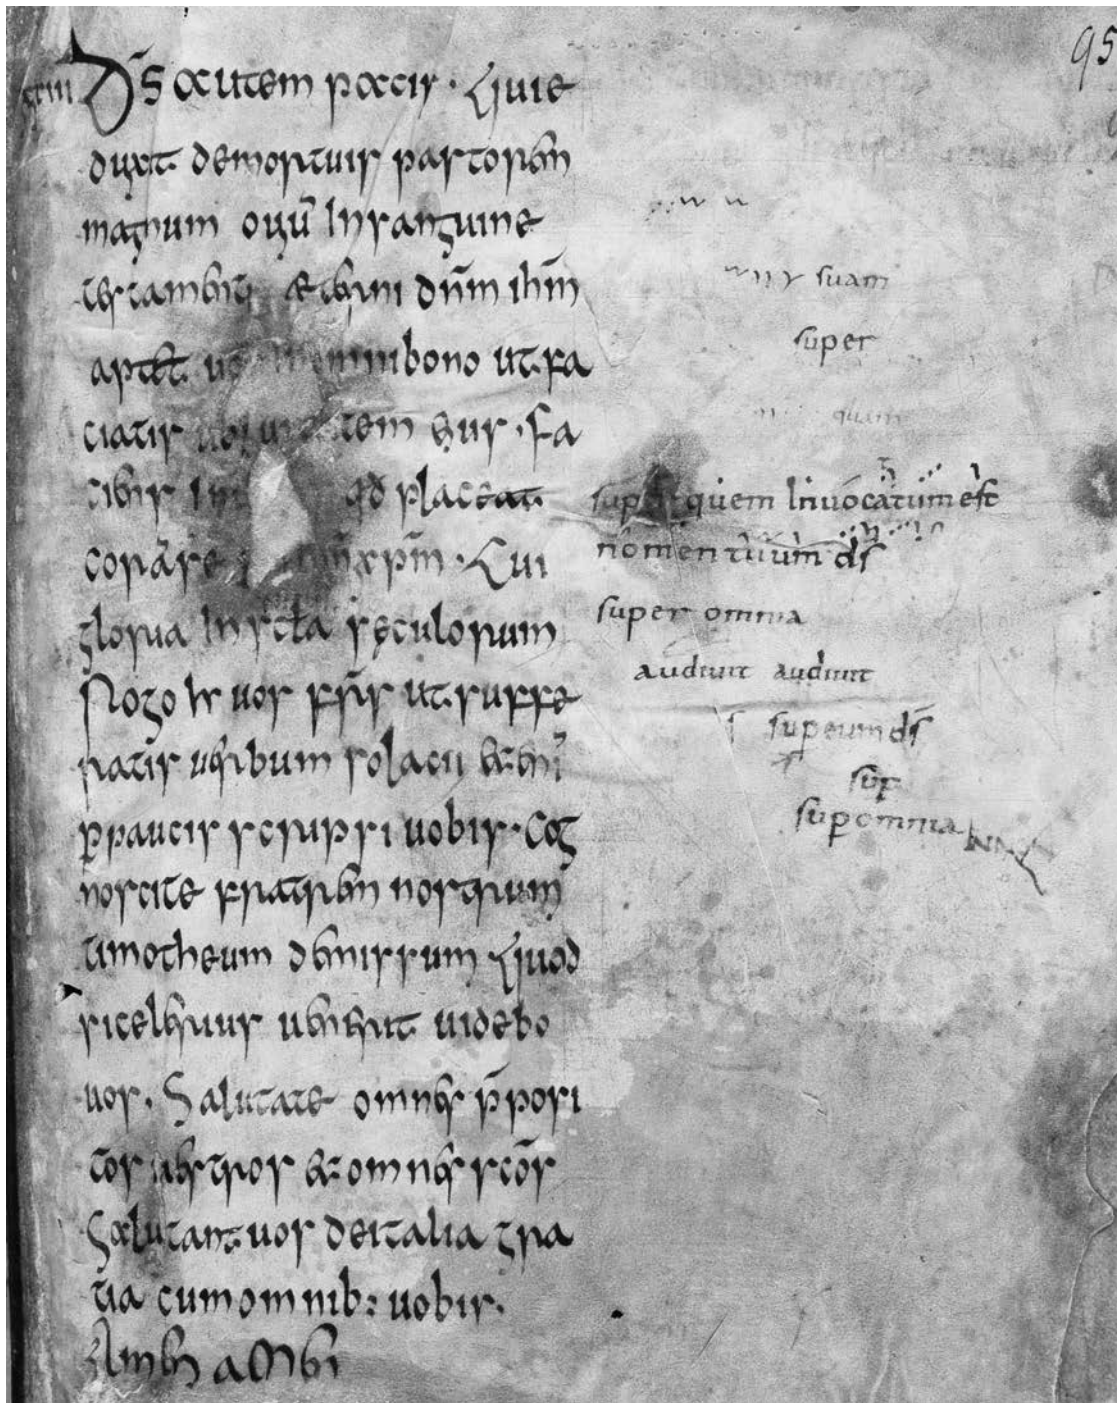 95
D̄s autem pacis · Qui e
duxit de mortuis pastorem
magnum oviū In sanguine
testamenti æterni dn̄m ihm̄
aptet vos In omni bono ut fa
ciatis voluntatem eius · fa
ciens In qd placeat
coram se xpm̄ · Cui
gloria In scła sęculorum
Rogo hr vos fr̄s ut suffe
ratis verbum solacii &
p̄paucis scrupsi vobis · Cog
noscite fratrem nostrum
timotheum demissum Quod
si celerius venerit videbo
vos · Salutate omnes p̄posi
tos vestros &omnes scōs
Salutant vos de italia gra
tia cum omnib: vobis ·
Amen amen
suam
super
quam
super quem Invocatum est
nomen tuum ds̄
super omnia
audiunt audiunt
s super eum ds̄
sup̱
sup̱ omnia